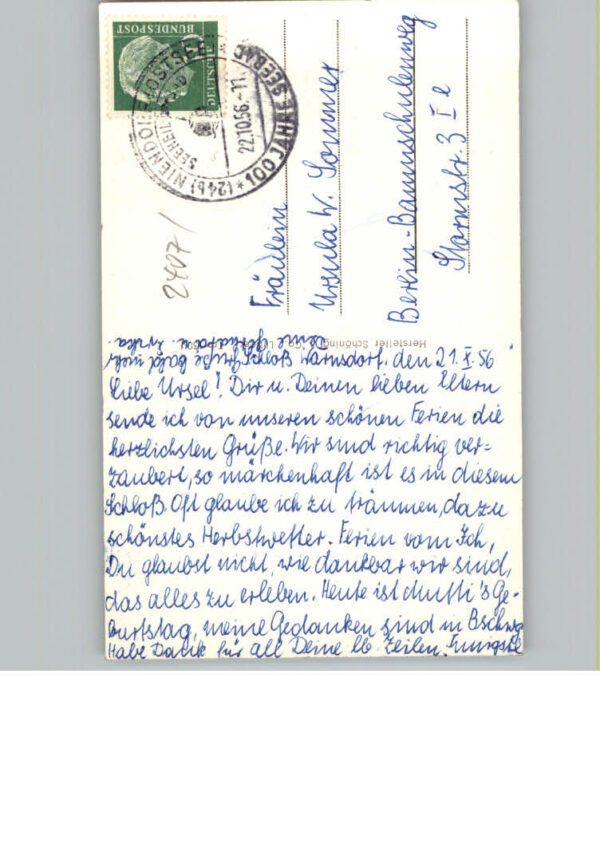 Schloß Warnsdorf, den 21.X.56
Liebe Ursel! Dir u. Deinen lieben Eltern
sende ich von unseren schönen Ferien die
herzlichsten Grüße. Wir sind richtig ver-
zaubert, so märchenhaft ist es in diesem
Schloß. Oft glaube ich zu träumen, dazu
schönstes Herbstwetter. Ferien vom Ich,
Du glaubst nicht, wie dankbar wir sind,
das alles zu erleben. Heute ist Mutti's Ge-
burtstag, meine Gedanken sind in Bschwg
Habe Dank für all Deine lb. Zeilen. Innigste
Grüße
Deine
Fräulein
Ursula W. Sommer
Berlin-Baumschulenweg
Stormstr. 3 I e
2407/
Hersteller Schöning & Co
DEUTSCHE
BUNDESPOST
(24b) NIENDORF OSTSEE
22.10.56.-11
* 100 JAHRE SEEBAD